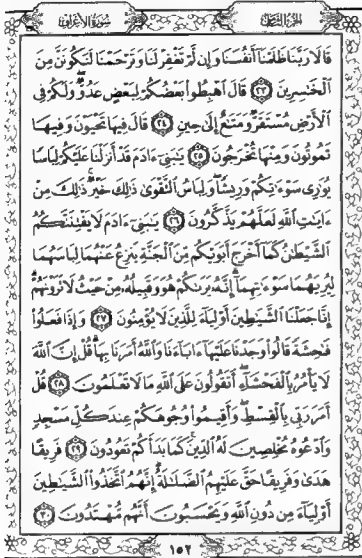 الجزء الثامن سورة الأعراف
قَالَا رَبَّنَا ظَلَمْنَآ أَنفُسَنَا وَإِن لَّمْ تَغْفِرْ لَنَا وَتَرْحَمْنَا لَنَكُونَنَّ مِنَ
ٱلْخَـٰسِرِينَ ٢٣ قَالَ ٱهْبِطُوا۟ بَعْضُكُمْ لِبَعْضٍ عَدُوٌّ ۖ وَلَكُمْ فِى
ٱلْأَرْضِ مُسْتَقَرٌّ وَمَتَـٰعٌ إِلَىٰ حِينٍ ٢٤ قَالَ فِيهَا تَحْيَوْنَ وَفِيهَا
تَمُوتُونَ وَمِنْهَا تُخْرَجُونَ ٢٥ يَـٰبَنِىٓ ءَادَمَ قَدْ أَنزَلْنَا عَلَيْكُمْ لِبَاسًا
يُوَٰرِى سَوْءَٰتِكُمْ وَرِيشًا ۖ وَلِبَاسُ ٱلتَّقْوَىٰ ذَٰلِكَ خَيْرٌ ۚ ذَٰلِكَ مِنْ
ءَايَـٰتِ ٱللَّهِ لَعَلَّهُمْ يَذَّكَّرُونَ ٢٦ يَـٰبَنِىٓ ءَادَمَ لَا يَفْتِنَنَّكُمُ
ٱلشَّيْطَـٰنُ كَمَآ أَخْرَجَ أَبَوَيْكُم مِّنَ ٱلْجَنَّةِ يَنزِعُ عَنْهُمَا لِبَاسَهُمَا
لِيُرِيَهُمَا سَوْءَٰتِهِمَآ ۗ إِنَّهُۥ يَرَىٰكُمْ هُوَ وَقَبِيلُهُۥ مِنْ حَيْثُ لَا تَرَوْنَهُمْ ۗ
إِنَّا جَعَلْنَا ٱلشَّيَـٰطِينَ أَوْلِيَآءَ لِلَّذِينَ لَا يُؤْمِنُونَ ٢٧ وَإِذَا فَعَلُوا۟
فَـٰحِشَةً قَالُوا۟ وَجَدْنَا عَلَيْهَآ ءَابَآءَنَا وَٱللَّهُ أَمَرَنَا بِهَا ۗ قُلْ إِنَّ ٱللَّهَ
لَا يَأْمُرُ بِٱلْفَحْشَآءِ ۖ أَتَقُولُونَ عَلَى ٱللَّهِ مَا لَا تَعْلَمُونَ ٢٨ قُلْ
أَمَرَ رَبِّى بِٱلْقِسْطِ ۖ وَأَقِيمُوا۟ وُجُوهَكُمْ عِندَ كُلِّ مَسْجِدٍ
وَٱدْعُوهُ مُخْلِصِينَ لَهُ ٱلدِّينَ ۚ كَمَا بَدَأَكُمْ تَعُودُونَ ٢٩ فَرِيقًا
هَدَىٰ وَفَرِيقًا حَقَّ عَلَيْهِمُ ٱلضَّلَـٰلَةُ ۗ إِنَّهُمُ ٱتَّخَذُوا۟ ٱلشَّيَـٰطِينَ
أَوْلِيَآءَ مِن دُونِ ٱللَّهِ وَيَحْسَبُونَ أَنَّهُم مُّهْتَدُونَ ٣٠
١٥٣